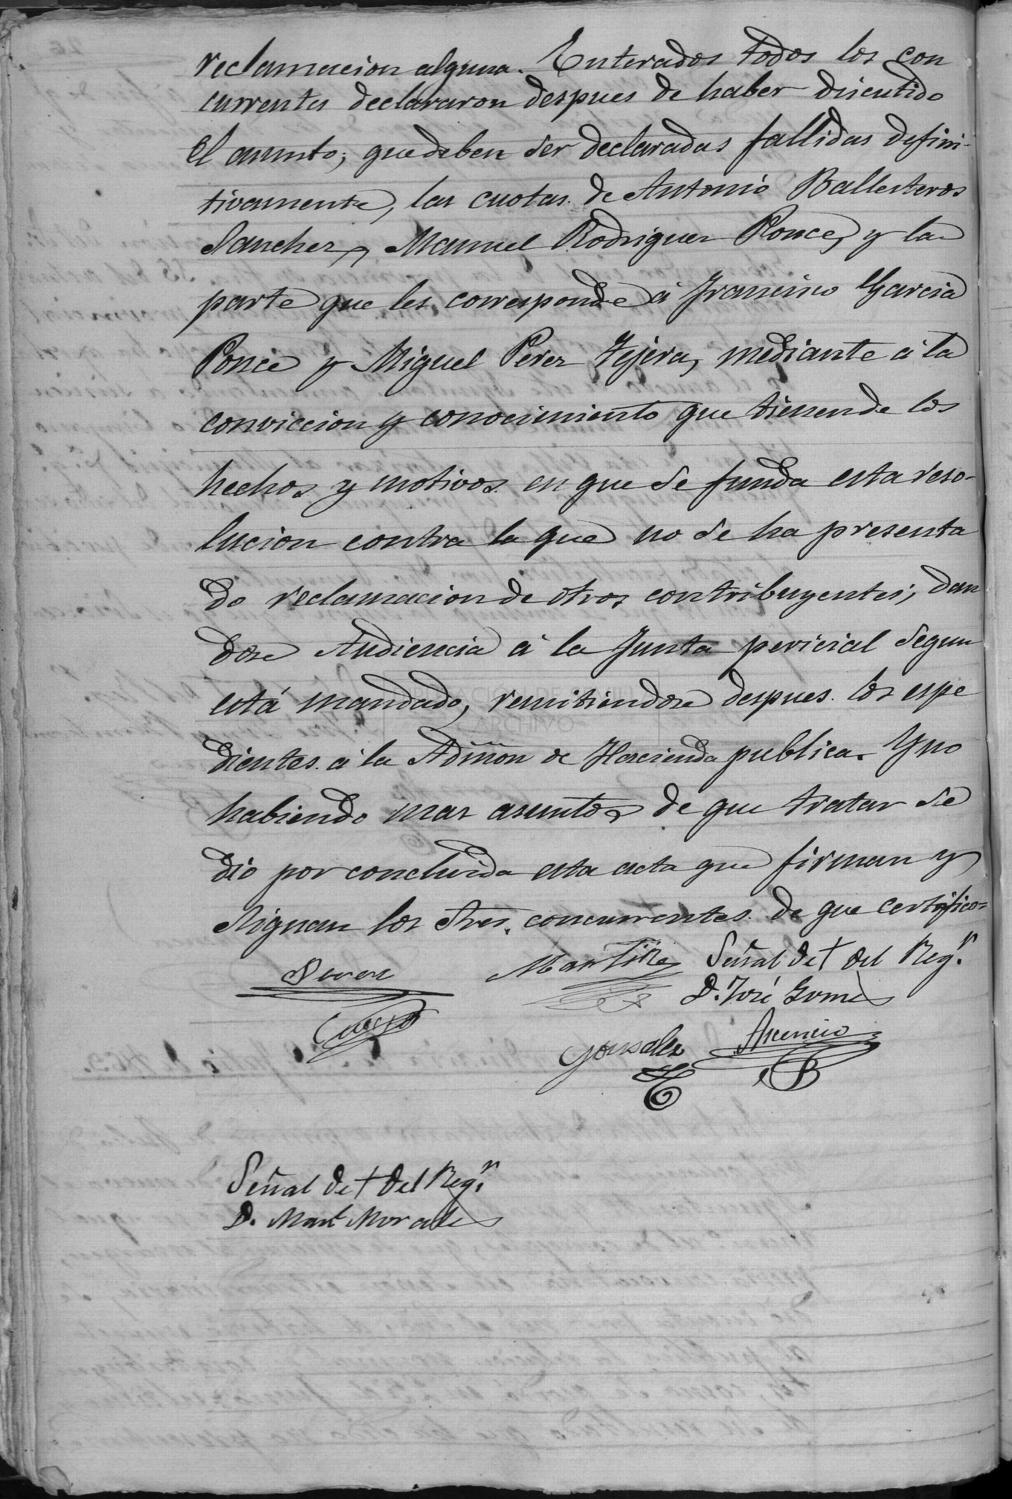 reclamacion alguna. Enterados todos los con
currentes declararon despues de haber discutido
el asunto, que deben ser declaradas fallidas defini-
tivamente, las cuotas de Antonio Ballesteros
Sanchez, Manuel Rodriguez Ponce, y la
parte que les corresponde á Francisco Garcia
Ponce y Miguel Perez Tejera, mediante á la
conviccion y conocimiento que tienen de los
hechos y motivos en que se funda esta reso-
lucion contra la que no se ha presenta
do reclamacion de otros contribuyentes, dan
dose Audiencia á la Junta pericial segun
está mandado, remitiendose despues los espe
dientes á la Admon de Hacienda publica. Y no
habiendo mas asuntos de que tratar se
dió por concluida esta acta que firman y
signan los Sres. concurrentes de que certifico=
Martinez Señal de † del Regr.
D. José Gomez
Gonzalez Asencio
Señal de † del Regr.
D. Mart Morales